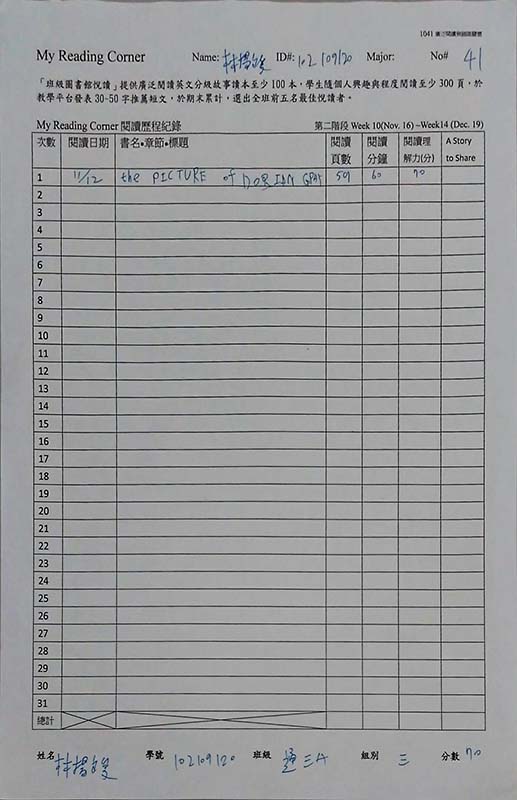 1041 廣泛閱讀
My Reading Corner Name: 林揚 ID#: 102109120 Major: No# 41
「班級圖書館悅讀」提供廣泛閱讀英文分級故事讀本至少 100 本,學生隨個人興趣與程度閱讀至少 300 頁,於
教學平台發表 30-50 字推薦短文,於期末累計,選出全班前五名最佳悅讀者。
My Reading Corner 閱讀歷程紀錄 第二階段 Week 10(Nov. 16) ~Week14 (Dec. 19)
次數 閱讀日期 書名•章節•標題 閱讀頁數 閱讀分鐘 閱讀理解力(分) A Story to Share
1 11/12 the PICTURE of DORIAN GRAY 60 70
2
3
4
5
6
7
8
9
10
11
12
13
14
15
16
17
18
19
20
21
22
23
24
25
26
27
28
29
30
31
總計
姓名 林揚 學號 102109120 班級 三A 組別 三 分數 70